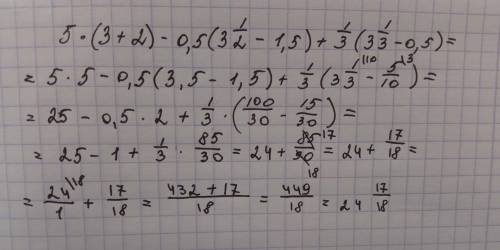 5·(3+2) - 0,5(3 1/2 - 1,5) + 1/3(3 1/3 - 0,5) =
= 5·5 - 0,5(3,5 - 1,5) + 1/3(3 1/3\10 - 5/10\3) =
= 25 - 0,5·2 + 1/3·(100/30 - 15/30) =
= 25 - 1 + 1/3·85/30 = 24 + 85 17/90 18 = 24 + 17/18 =
= 24\18/1 + 17/18 = 432 + 17/18 = 449/18 = 24 17/18